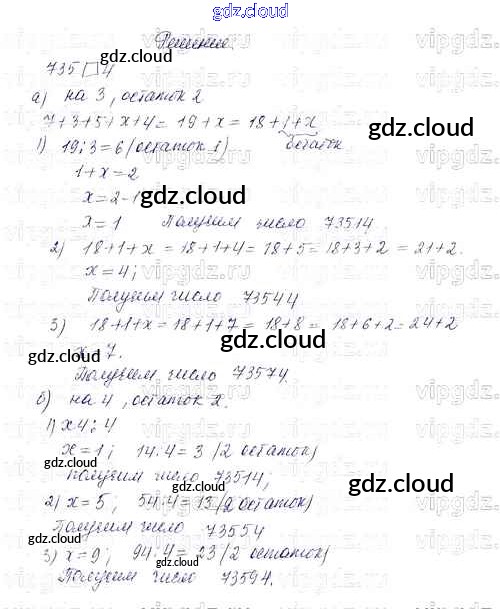 gdz.cloud
Решение.
735□4
а) на 3, остаток 2
7+3+5+x+4= 19+x = 18+1+x
остаток
1) 19:3=6 (остаток 1)
1+x=2
x=2-1
x=1 Получим число 73514
2) 18+1+x = 18+1+4= 18+5= 18+3+2 = 21+2.
x=4;
Получим число 73544
3) 18+1+x=18+1+7= 18+8= 18+6+2=24+2
x=7.
Получим число 73574.
б) на 4, остаток 2.
1) x4:4
x=1; 14:4= 3 (2 остаток)
Получим число 73514;
2) x=5; 54:4= 13 (2 остаток)
Получим число 73554
3) x=9; 94:4= 23 (2 остаток)
Получим число 73594.